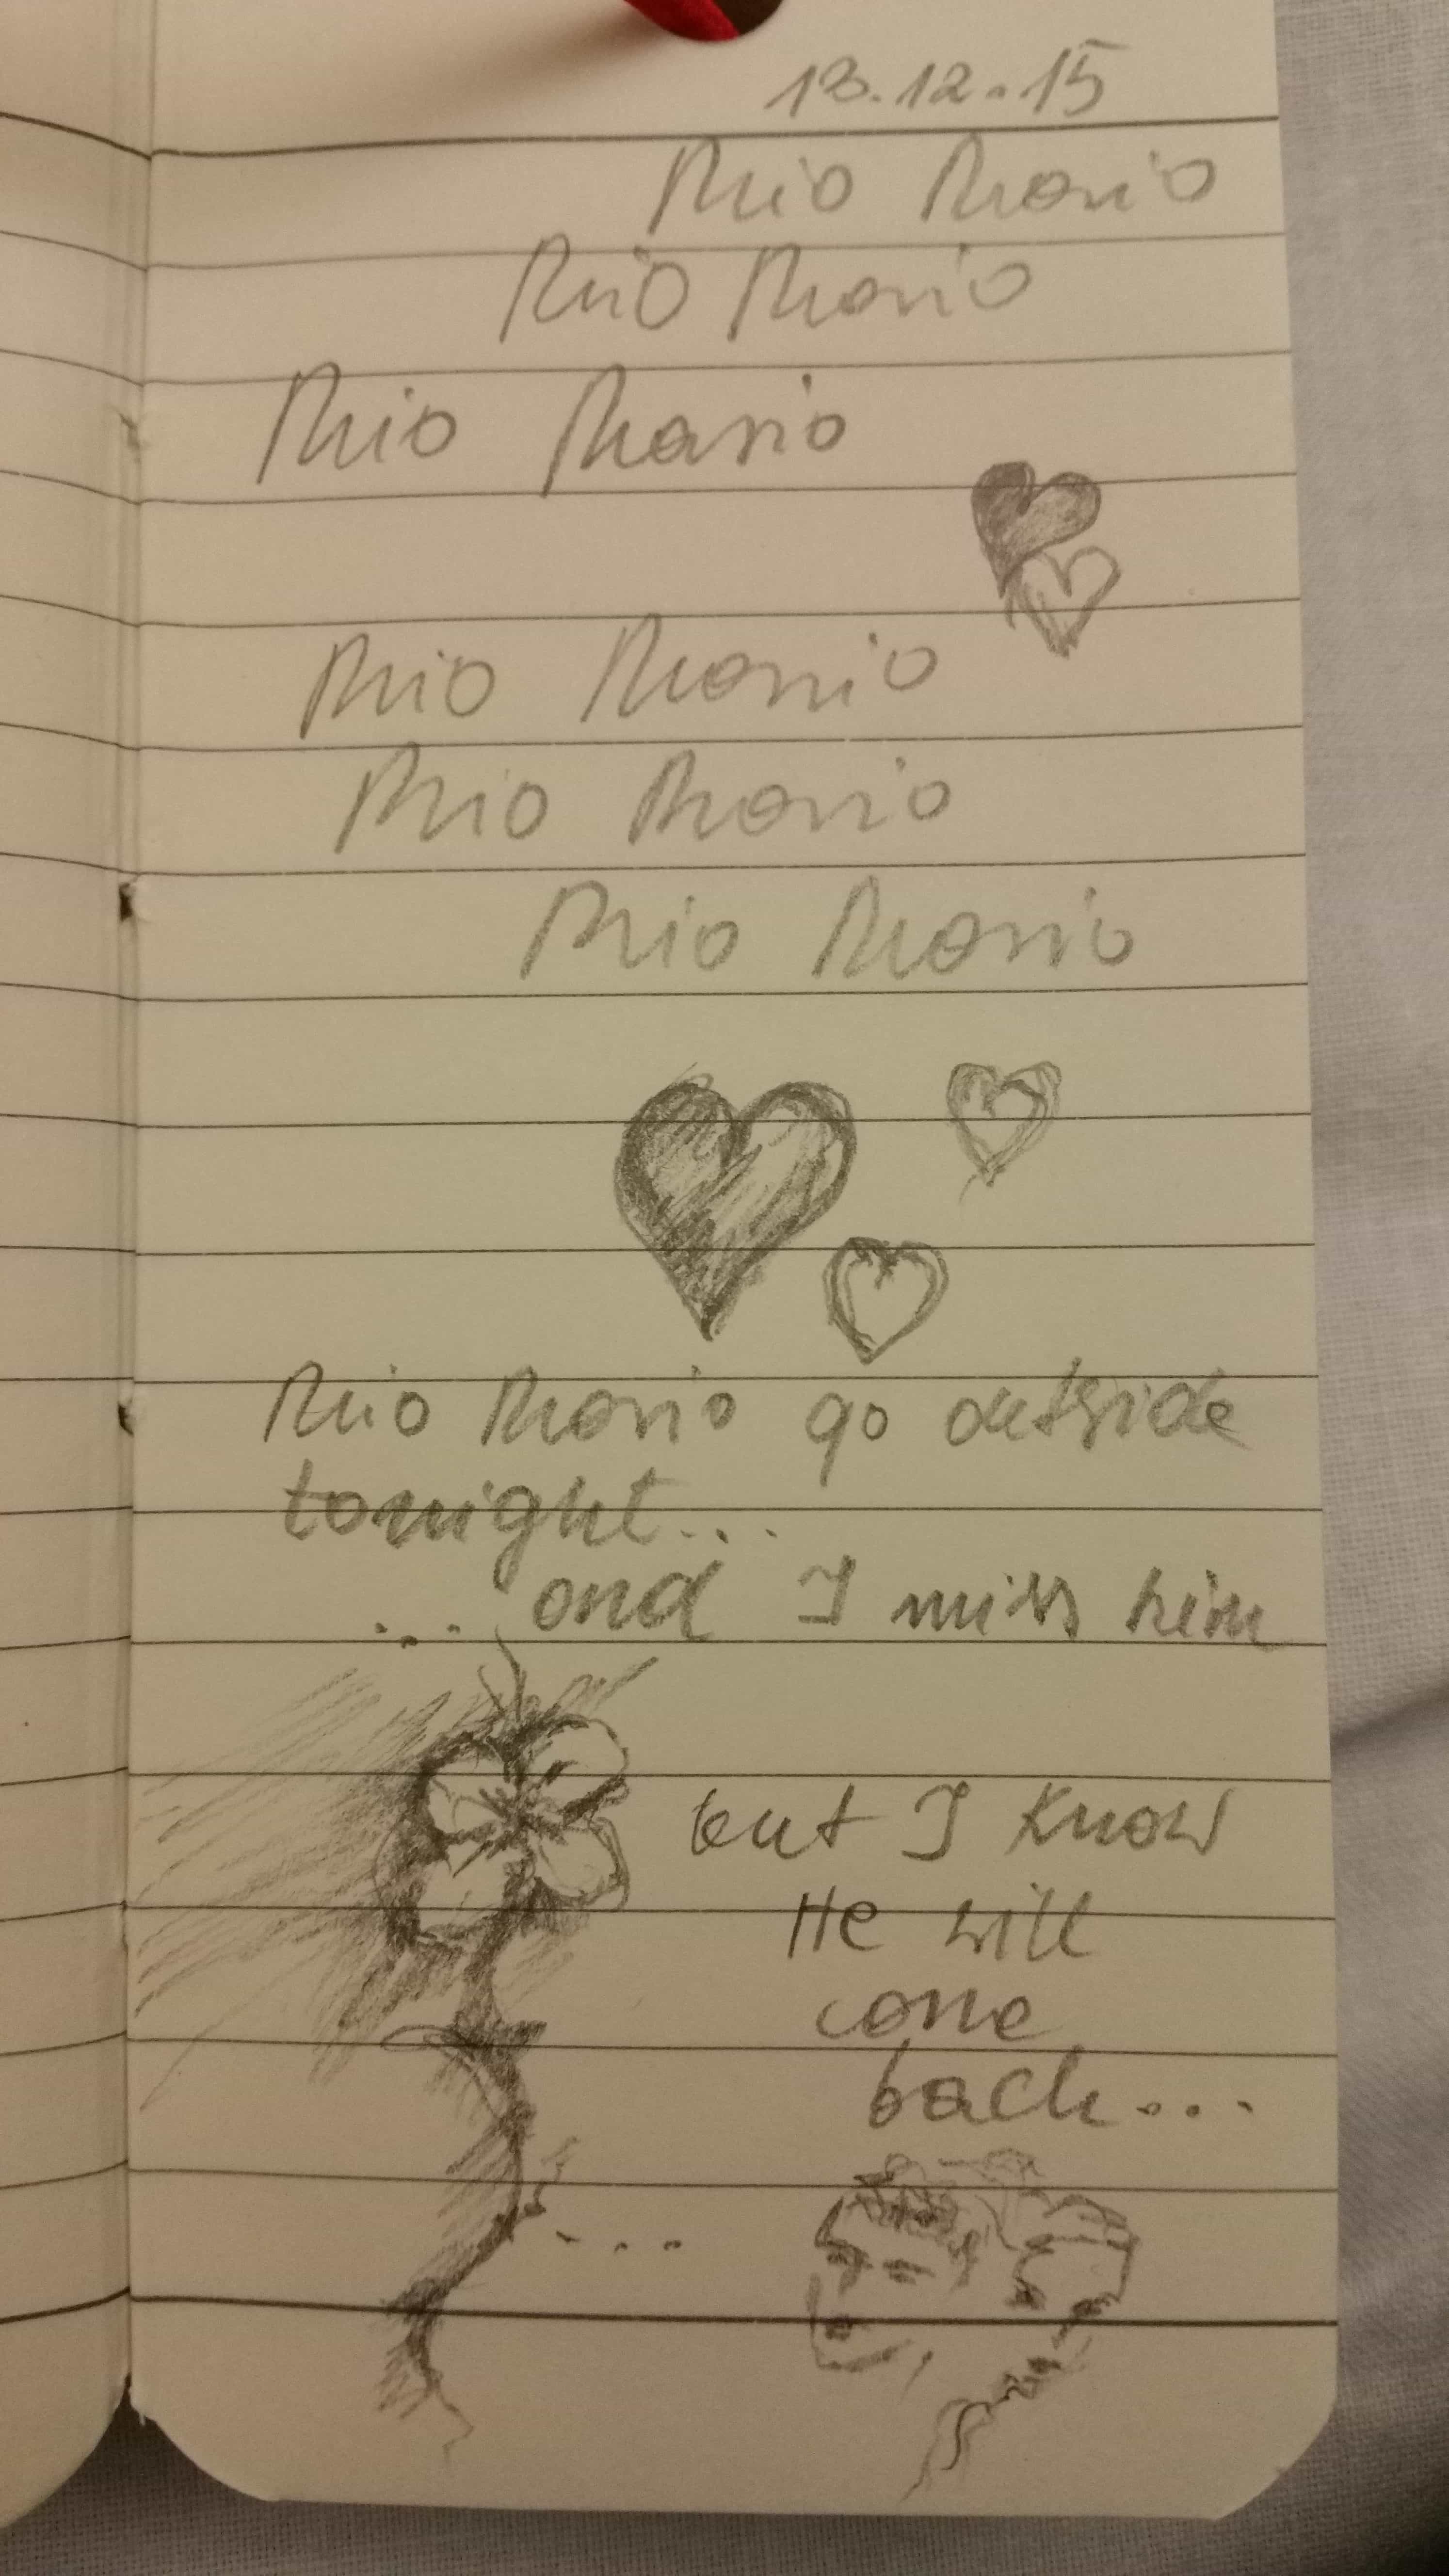 13.12.15
Mio Mario
Mio Mario
Mio Mario
Mio Mario
Mio Mario
Mio Mario
Mio Mario go outside
tonight...
... and I miss him
but I know
He will
come
back...
...